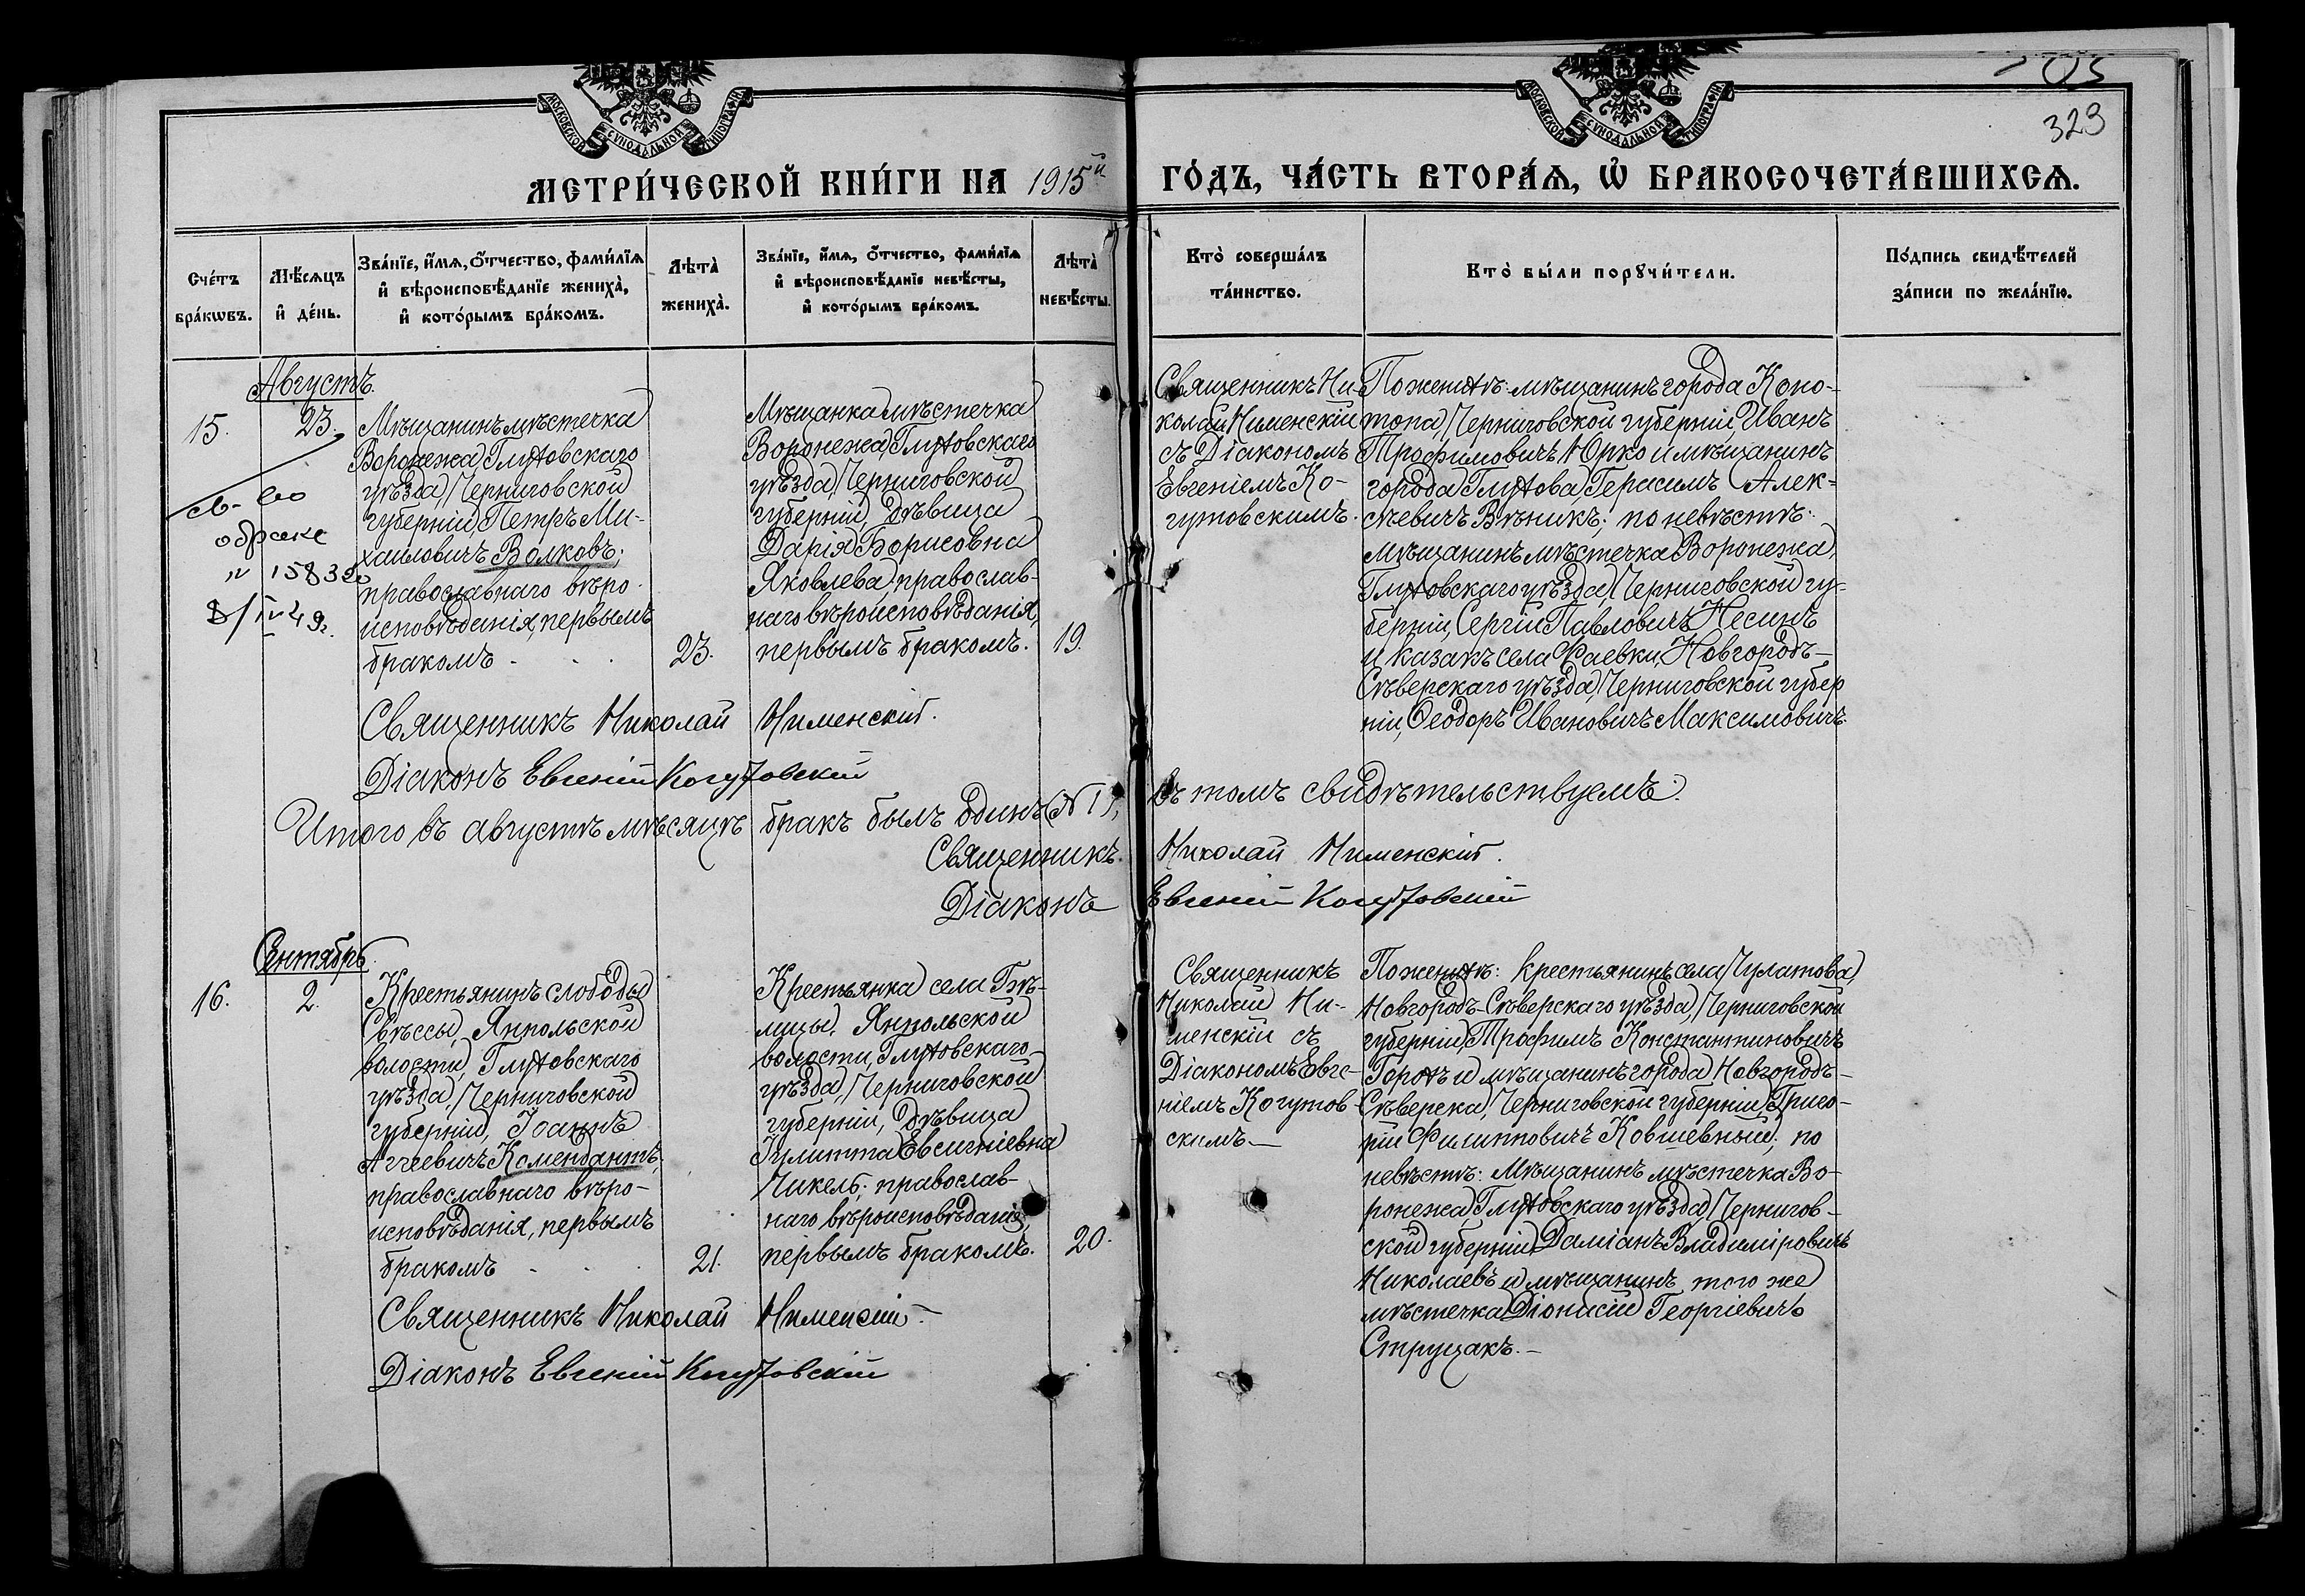 МОСКОВСКОЙ СѴНОДАЛЬНОЙ ТИПОГРАФІИ
МОСКОВСКОЙ СѴНОДАЛЬНОЙ ТИПОГРАФІИ
329
МЕТРИ́ЧЕСКОЙ КНИ́ГИ НА 1915й ГО́ДЪ, ЧА́СТЬ ВТОРА́Ѧ, Ѡ҆ БРАКОСОЧЕТА́ВШИХСѦ.
Сче́тъ бра́кѡвъ.
Мѣ́сѧцъ и҆ де́нь.
Зва́нїе, и҆́мѧ, ѻ҆́тчество, фами́лїѧ
и҆ вѣроисповѣ́данїе жениха̀,
и҆ кото́рымъ бра́комъ.
Лѣта̀ жениха̀.
Зва́нїе, и҆́мѧ, ѻ҆́тчество, фами́лїѧ
и҆ вѣроисповѣ́данїе невѣ́сты,
и҆ кото́рымъ бра́комъ.
Лѣта̀ невѣ́сты.
Кто̀ соверша́лъ та́инство.
Кто̀ бы́ли порꙋчи́тели.
По́дпись свидѣ́телей
за́писи по жела́нїю.
Августъ.
15.
23.
св-во
о браке
8/IV 49г.
Мѣщанинъ мѣстечка
Воронежа, Глуховскаго
уѣзда, Черниговской
губерніи, Петръ Ми-
хаиловичъ Волковъ;
православнаго вѣро-
исповѣданія, первымъ
бракомъ . . .
23.
Мѣщанка мѣстечка
Воронежа, Глуховскаго
уѣзда, Черниговской
губерніи, дѣвица
Дарія Борисовна
Яковлева, православ-
наго вѣроисповѣданія,
первымъ бракомъ.
19.
Священникъ Ни-
колай Нименскій
съ Діакономъ
Евгеніемъ Ко-
гутовскимъ.
По женихѣ: мѣщанинъ города Коно-
топа, Черниговской губерніи, Иванъ
Трофимовичъ Юрко и мѣщанинъ
города Глухова, Герасимъ Алек-
сѣевичъ Вѣникъ; по невѣстѣ:
мѣщанинъ мѣстечка Воронежа,
Глуховскаго уѣзда, Черниговской гу-
берніи, Сергій Павловичъ Несинъ
и казакъ села Фаевки, Новгородъ-
Сѣверскаго уѣзда, Черниговской губер
ніи, Ѳеодоръ Ивановичъ Максимовичъ.
Священникъ Николай Нименскій.
Діаконъ Евгеній Когутовскій
Итого въ августѣ мѣсяцѣ бракъ былъ одинъ (№ 1), въ томъ свидѣтельствуемъ.
Священникъ Николай Нименскій.
Діаконъ Евгеній Когутовскій
Сентябрь.
16.
2.
Крестьянинъ слободы
Свѣссы, Янпольской
волости, Глуховскаго
уѣзда, Черниговской
губерніи, Іоаннъ
Аггеевичъ Комендантъ,
православнаго вѣро-
исповѣданія, первымъ
бракомъ . . .
21.
Крестьянка села Бѣ-
лицы, Янпольской
волости, Глуховскаго
уѣзда, Черниговской
губерніи, дѣвица
Іулитта Евсигніевна
Чикель; православ-
наго вѣроисповѣданія,
первымъ бракомъ.
20.
Священникъ
Николай Ни-
менскій съ
Діакономъ Евге-
ніемъ Когутов-
скимъ.—
По женихѣ: крестьянинъ села Чулатова,
Новгородъ-Сѣверскаго уѣзда, Черниговской
губерніи, Трофимъ Константиновичъ
Горохъ и мѣщанинъ города Новгородъ-
Сѣверска, Черниговской губерніи, Григо-
рій Филипповичъ Ковшевный; по
невѣстѣ: мѣщанинъ мѣстечка Во-
ронежа, Глуховскаго уѣзда, Чернигов-
ской губерніи, Даміанъ Владиміровичъ
Николаевъ и мѣщанинъ того же
мѣстечка Діонисій Георгіевичъ
Струцакъ.—
Священникъ Николай Нименскій.—
Діаконъ Евгеній Когутовскій